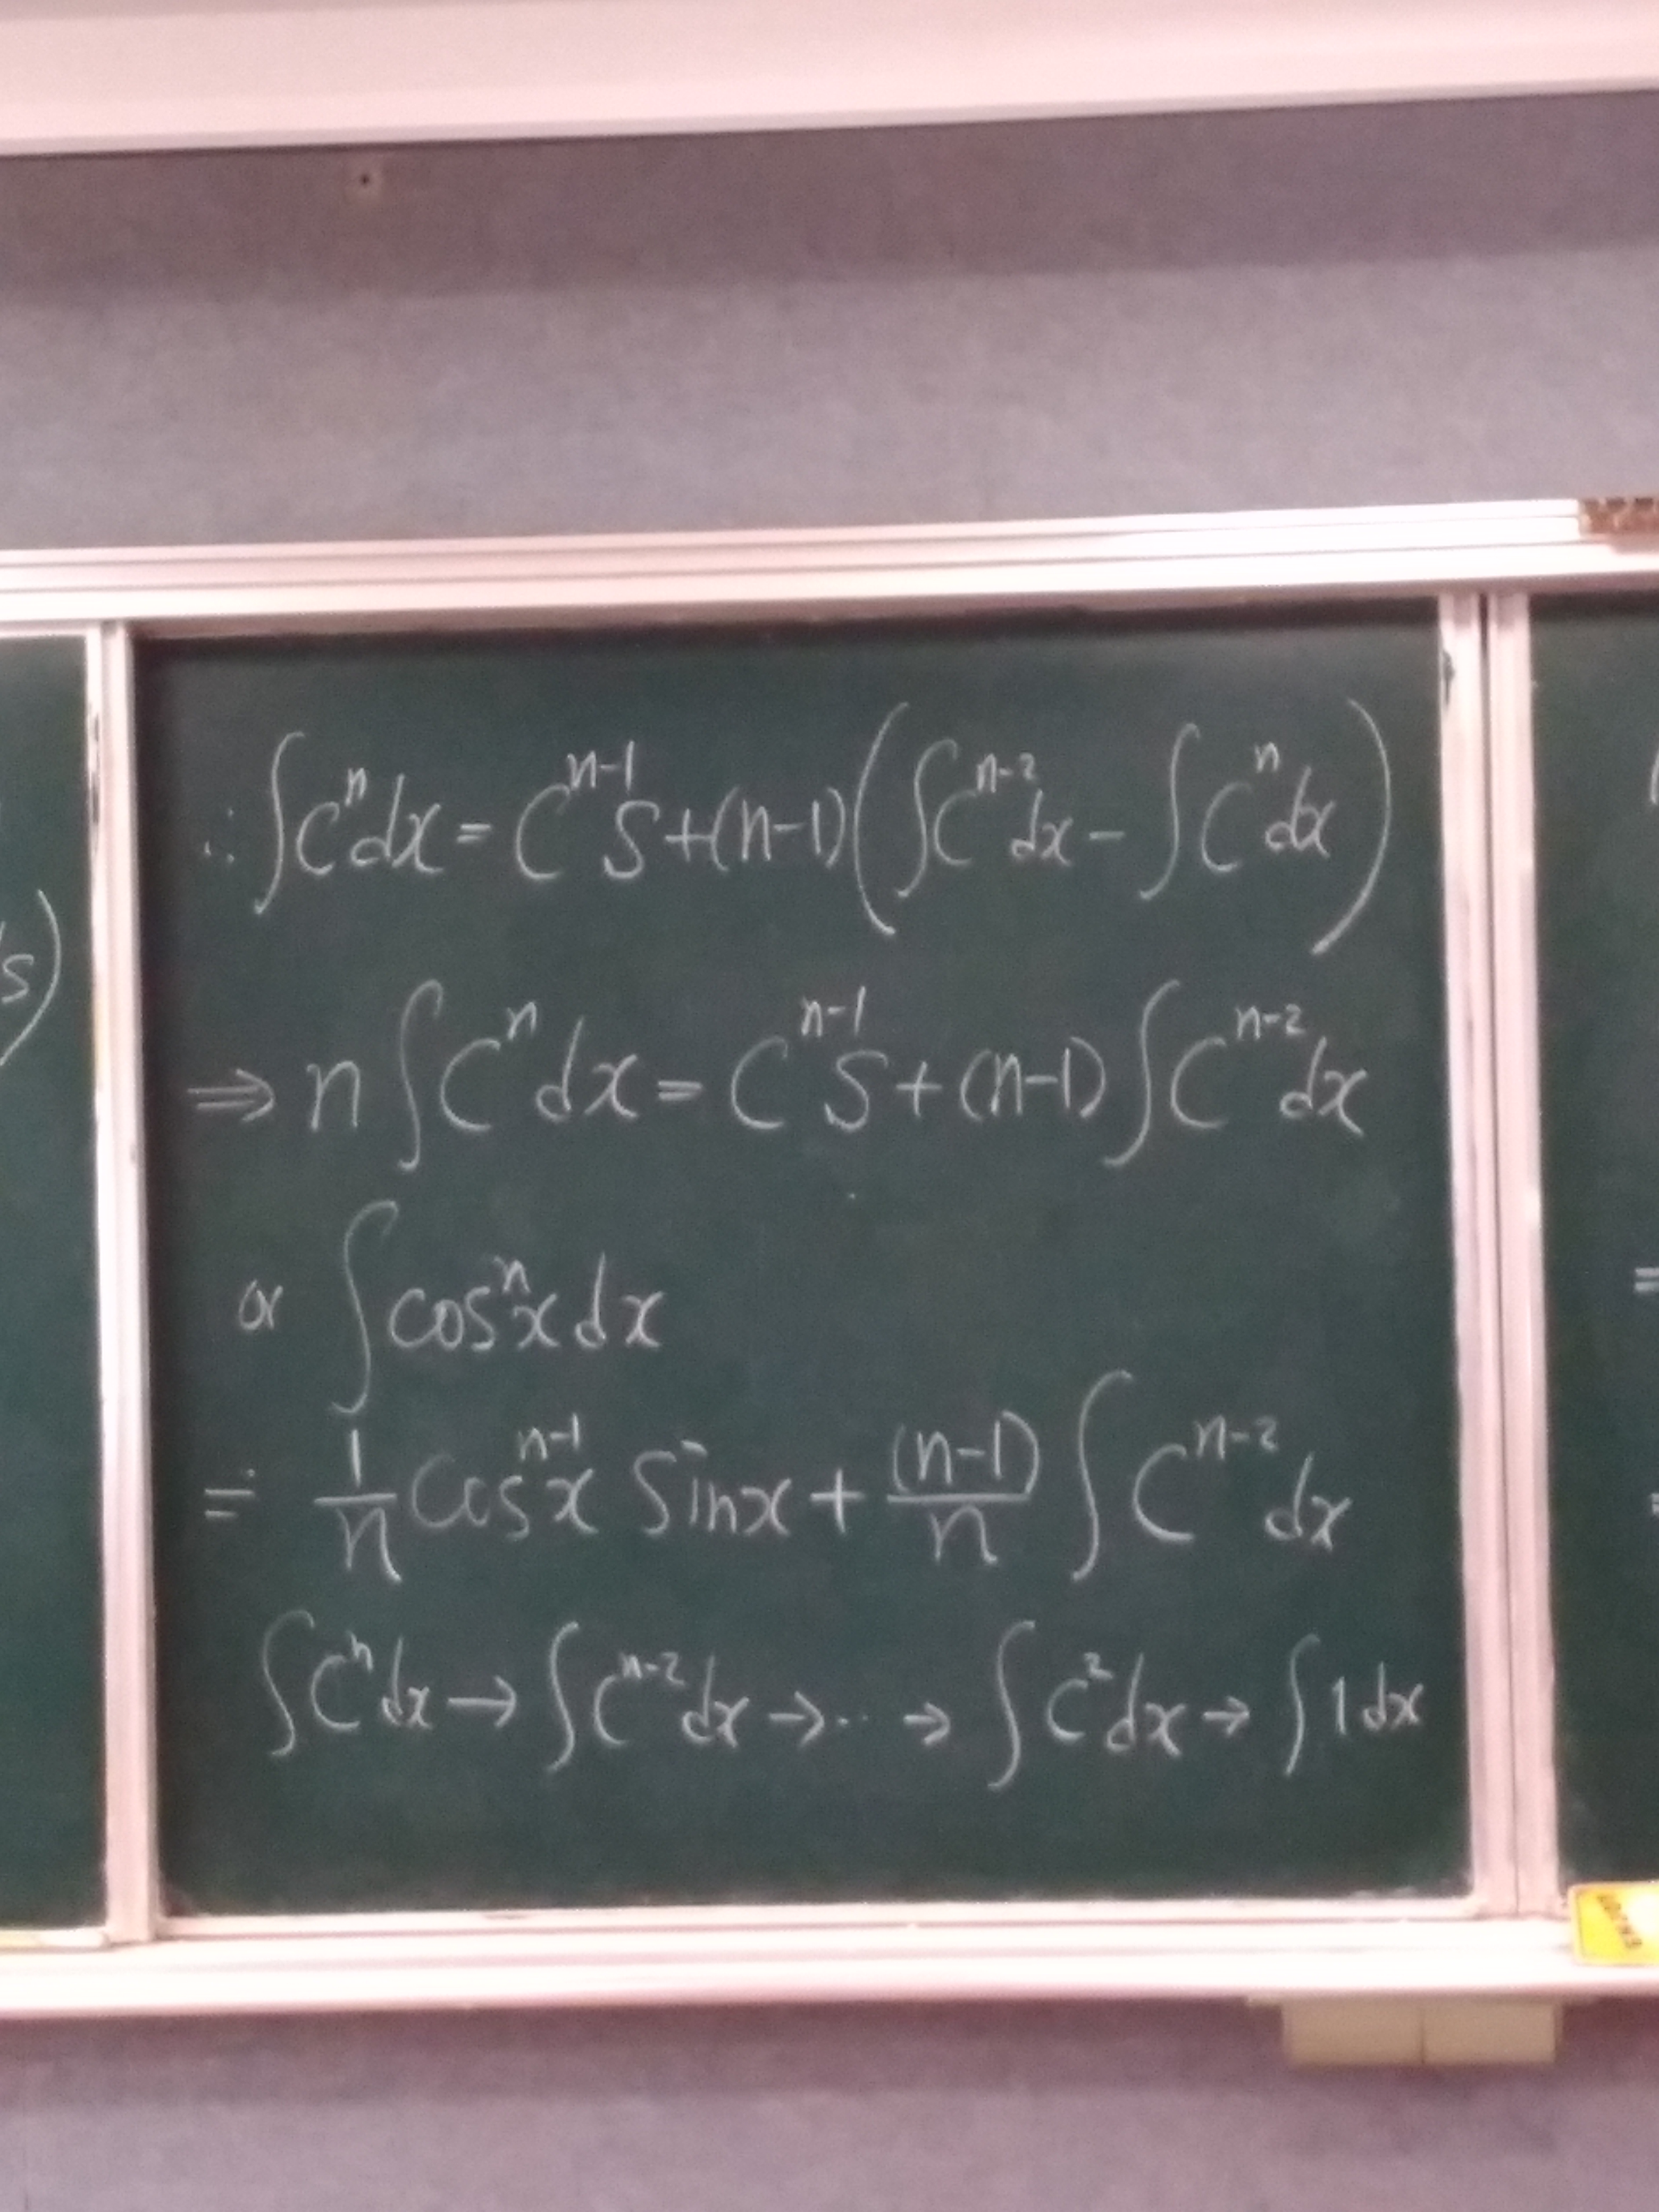 ∴ ∫Cⁿdx = Cⁿ⁻¹S + (n-1)(∫Cⁿ⁻²dx - ∫Cⁿdx)
⇒ n∫Cⁿdx = Cⁿ⁻¹S + (n-1)∫Cⁿ⁻²dx
or ∫cosⁿx dx
= 1/n Cosⁿ⁻¹x Sinx + (n-1)/n ∫Cⁿ⁻²dx
∫Cⁿdx → ∫Cⁿ⁻²dx → ... → ∫C²dx → ∫1dx